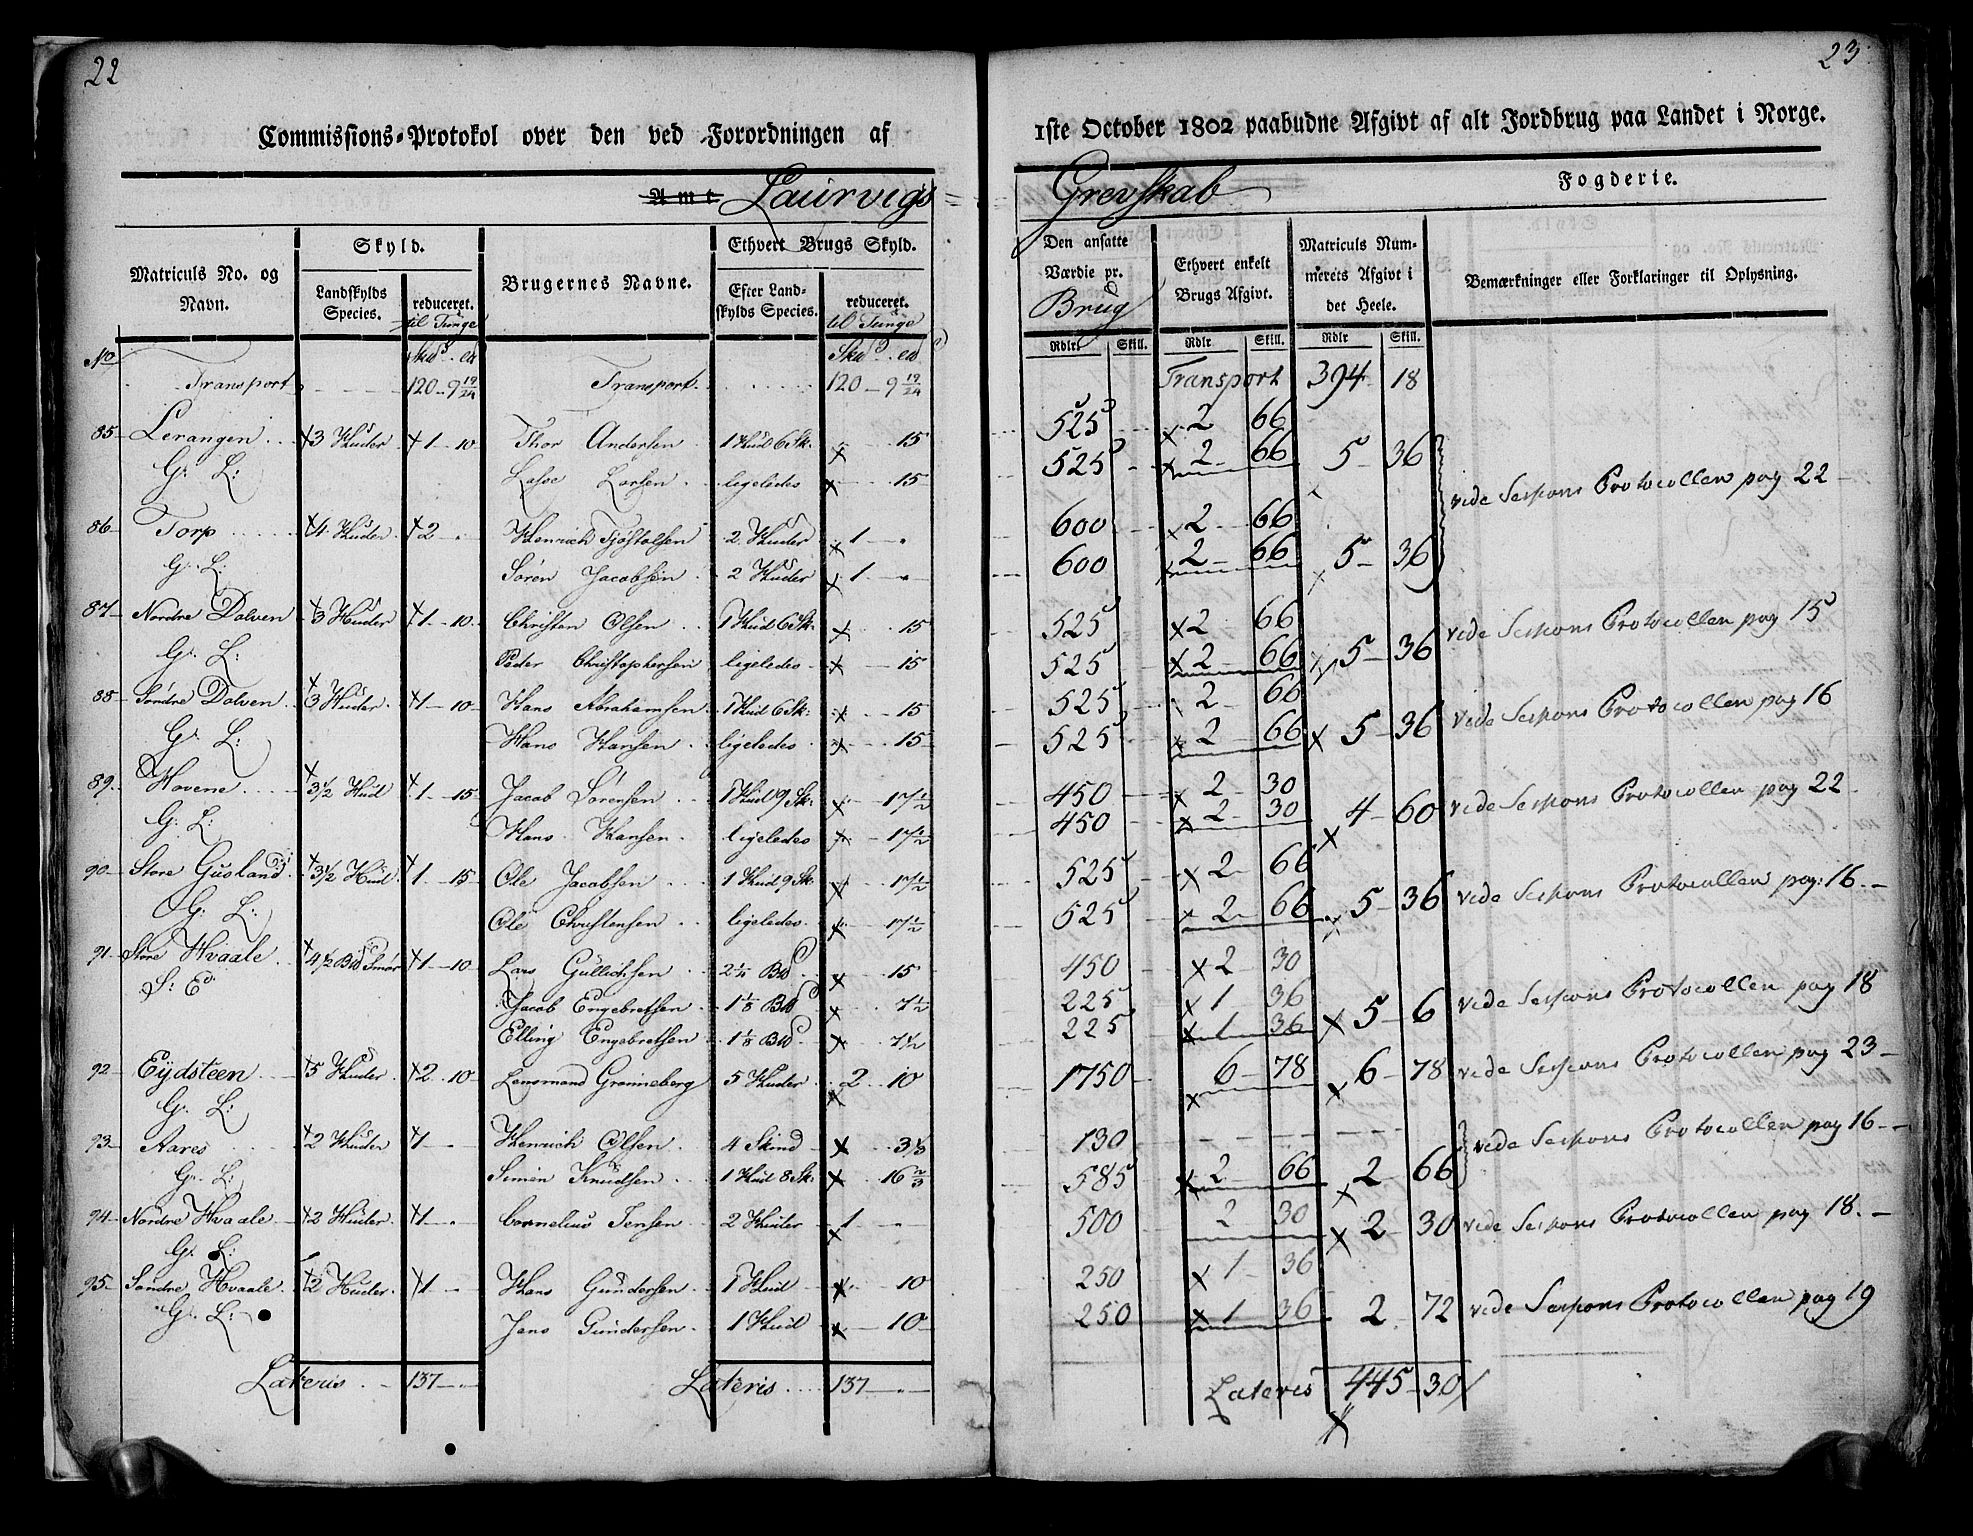 22
Commissions-Protokol over den ved Forordningen af
Amt Laurvigs
Matriculs No. og Navn.
Skyld.
Landskylds Species.
reduceret. til Tunge
Brugernes Navne.
Ethvert Brugs Skyld.
Efter Landskylds Species.
reduceret. til Tunge
No
Transport 120 - 9 19/24 Transport 120 - 9 19/24
85 Lerangen 3 Huder 1 - 10 Thor Andersen 1 Hud 6 Sk: 15
G: L: Lasse Larsen ligeledes 15
86 Torp 4 Huder 2 - Henrich Tjøstolsen 2 Huder 1 -
G: L: Søren Jacobsen 2 Huder 1 -
87 Nordre Dolven 3 Huder 1 - 10 Christen Olsen 1 Hud 6 Sk: 15
G: L: Peder Christophersen ligeledes 15
88 Søndre Dolven 3 Huder 1 - 10 Hans Abrahamsen 1 Hud 6 Sk: 15
G: L: Hans Hansen ligeledes 15
89 Hovene 3 1/2 Hud 1 - 15 Jacob Sørensen 1 Hud 9 Sk: 17 1/2
G: L: Hans Hansen ligeledes 17 1/2
90 Store Gusland 3 1/2 Hud 1 - 15 Ole Jacobsen 1 Hud 9 Sk 17 1/2
G: L: Ole Christensen ligeledes 17 1/2
91 Store Hvaale 4 1/2 Bd Smør 1 - 10 Lars Gullichsen 2 1/4 Bd 15
S: E Jacob Engebretsen 1 1/8 Bd 7 1/2
Elling Engebretsen 1 1/8 Bd 7 1/2
92 Eydsteen 5 Huder 2 - 10 Lensmand Grønneberg 5 Huder 2 - 10
G: L:
93 Aares 2 Huder 1 - Henrich Olsen 4 Skind 3 1/3
G: L: Simen Knudsen 1 Hud 8 Sk: 16 2/3
94 Nordre Hvaale 2 Huder 1 - Cornelius Jensen 2 Huder 1 -
G: L:
95 Søndre Hvaale 2 Huder 1 - Hans Gundersen 1 Hud 10
G: L: Jens Gundersen 1 Hud 10
Lateris 137 - Lateris 137 -
23
1ste October 1802 paabudne Afgivt af alt Jordbrug paa Landet i Norge.
Grevskab Fogderie.
Den ansatte Værdie pr. Brug
Ethvert enkelt Brugs Afgivt.
Matriculs Nummerets Afgivt i det Heele.
Bemærkninger eller Forklaringer til Oplysning.
Rdlr Skill. Rdlr Skill. Rdlr Skill.
Transport 394 - 18
525 2 66
525 2 66 5 - 36
vide Sessions Protocollen pag 22
600 2 66
600 2 66 5 - 36
525 2 66
525 2 66 5 - 36 vide Sessions Protocollen pag 15
525 2 66
525 2 66 5 - 36 vide Sessions Protocollen pag 16
450 2 30
450 2 30 4 - 60 vide Sessions Protocollen pag 22
525 2 66
525 2 66 5 - 36 vide Sessions Protocollen pag: 16
450 2 30
225 1 36
225 1 36 5 - 6 vide Sessions Protocollen pag 18
1750 6 78 6 - 78 vide Sessions Protocollen pag 23
130
585 2 66 2 - 66 vide Sessions Protocollen pag 16
500 2 30 2 - 30 vide Sessions Protocollen pag 18
250 1 36
250 1 36 2 - 72 vide Sessions Protocollen pag 19
Lateris 445 - 30